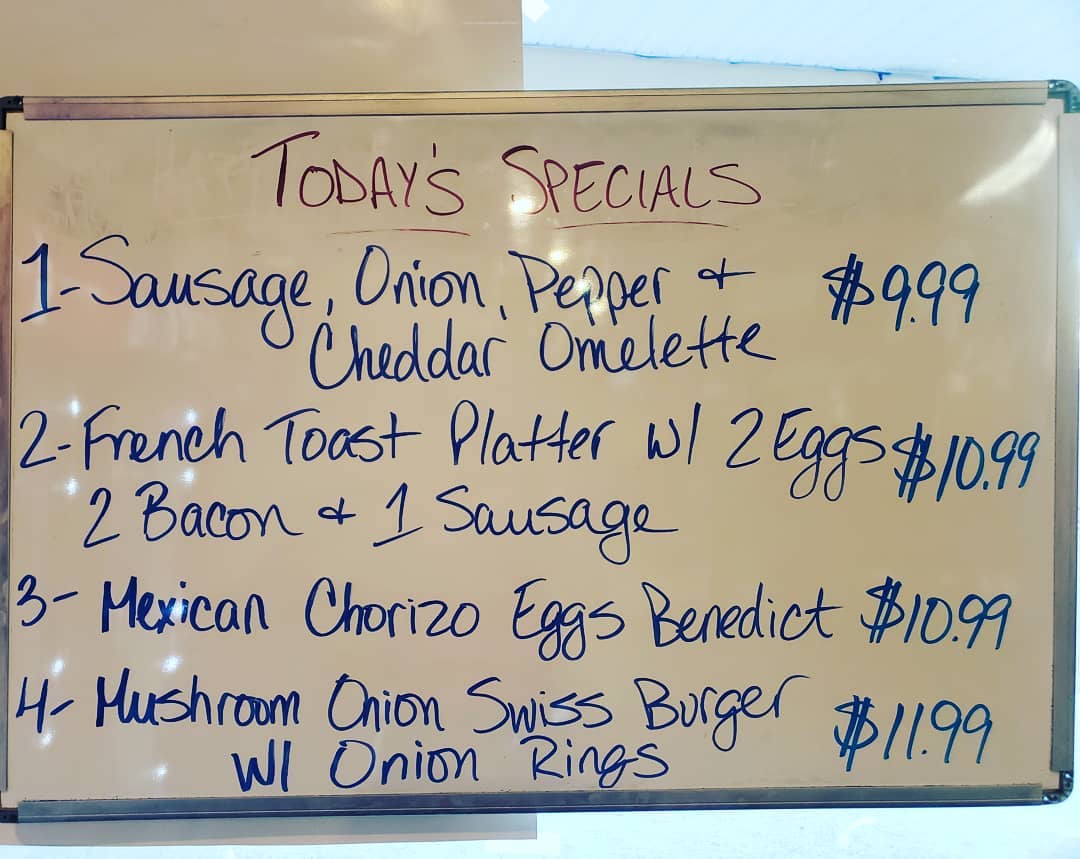 TODAY'S SPECIALS
1-Sausage, Onion, Pepper + $9.99
Cheddar Omelette
2-French Toast Platter w/ 2 Eggs $10.99
2 Bacon + 1 Sausage
3- Mexican Chorizo Eggs Benedict $10.99
4- Mushroom Onion Swiss Burger $11.99
W/ Onion Rings